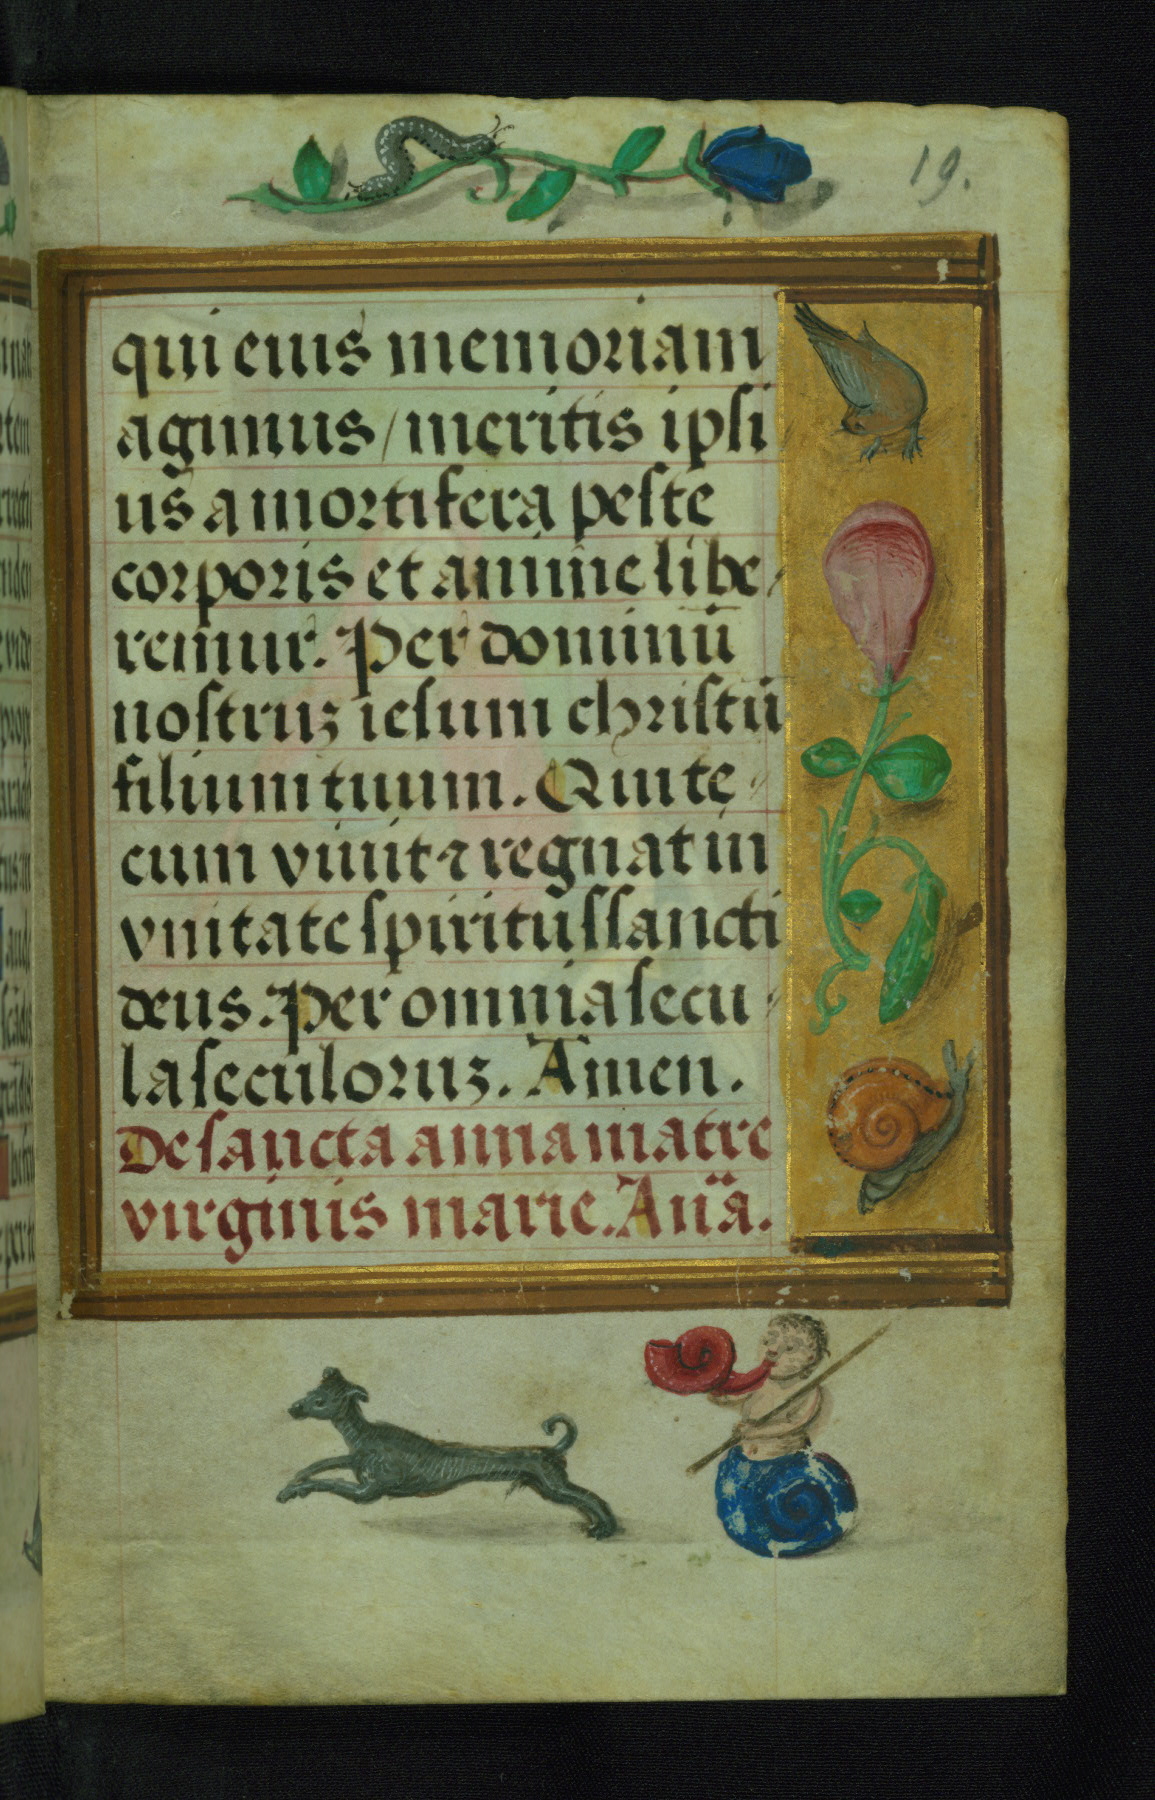 19.
qui eius memoriam
agimus / meritis ipsi
us a mortifera peste
corporis et anime libe⸗
remur. Per dominū
nostruꝫ iesum christū
filium tuum. Qui te⸗
cum viuit ⁊ regnat in
vnitate spiritus sancti
deus. Per omnia secu⸗
la seculoruꝫ. Amen.
De sancta anna matre
virginis marie. Añā.